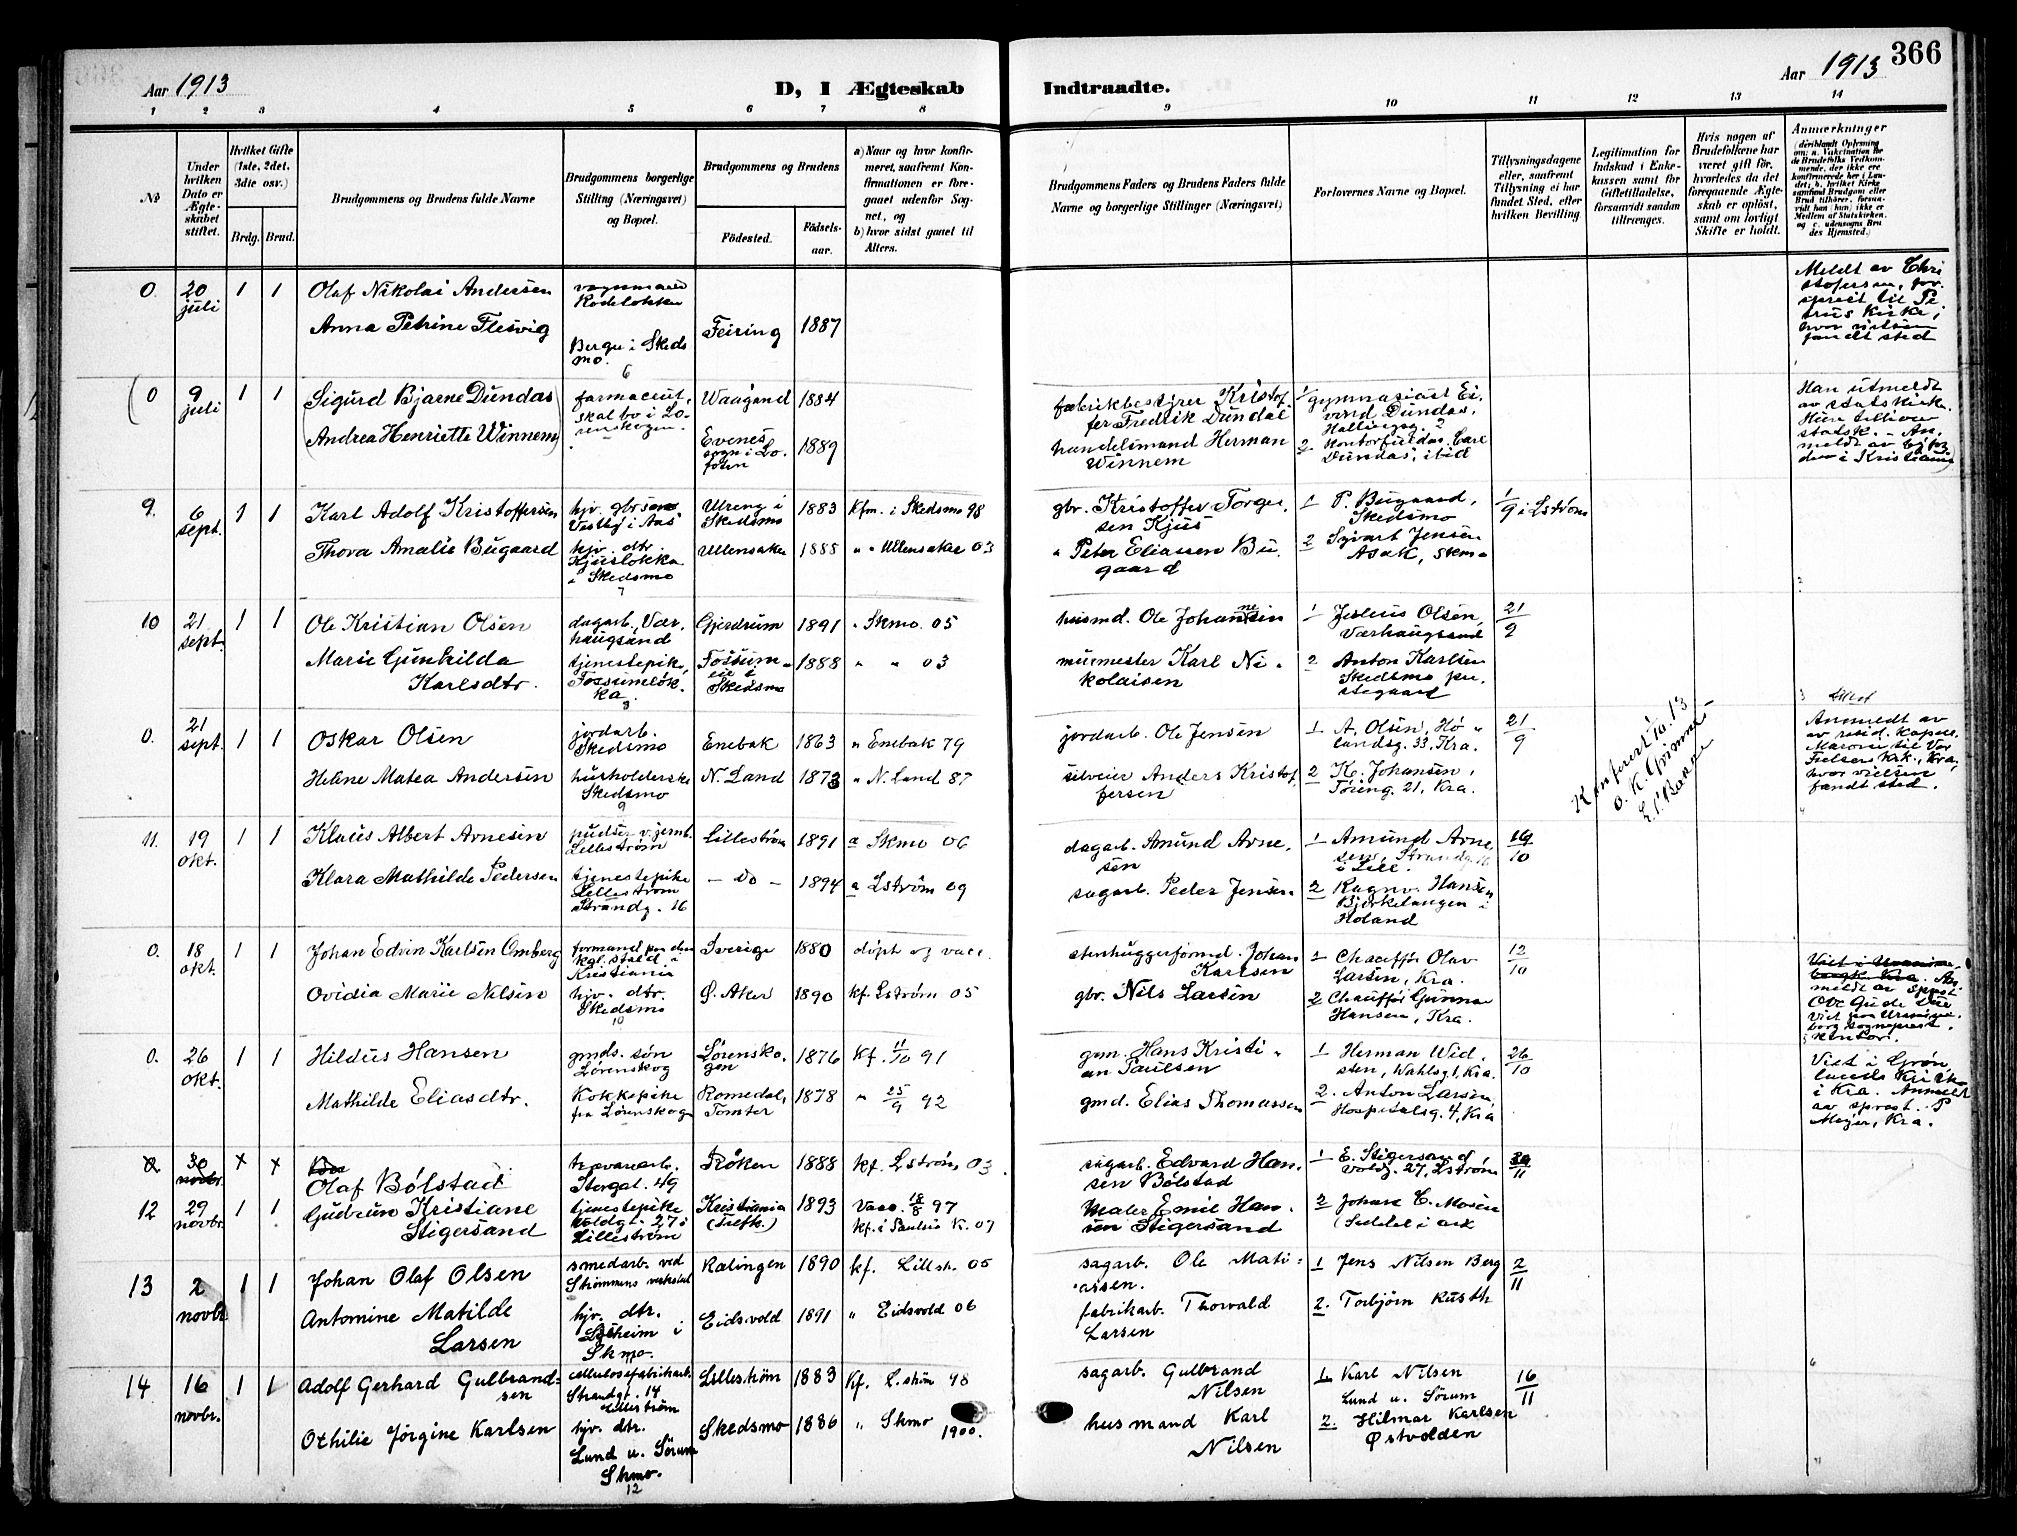 366
Aar 1913
D, I Ægteskab Indtraadte.
Aar 1913
1 2 3 4 5 6 7 8 9 10 11 12 13 14
No
Under hvilken Dato er Ægteskabet stiftet.
Hvilket Gifte (1ste, 2det, 3die osv.)
Brdg. Brud.
Brudgommens og Brudens fulde Navne
Brudgommens borgerlige Stilling (Næringsvei) og Bopæl.
Brudgommens og Brudens
Födested.
Födselsaar.
a) Naar og hvor konfirmeret, saafremt Konfirmationen er foregaaet udenfor Sognet, og
b) hvor sidst gaaet til Alters.
Brudgommens Faders og Brudens Faders fulde Navne og borgerlige Stillinger (Næringsvei)
Forlovernes Navne og Bopæl.
Tillysningsdagene eller, saafremt Tillysning ei har fundet Sted, efter hvilken Bevilling.
Legitimation for Indskud i Enkekassen samt for Giftetilladelse, forsaavidt saadan tiltrænges.
Hvis nogen af Brudefolkene har været gift för, hvorledes da det foregaaende Ægteskab er oplöst, samt om lovligt Skifte er holdt.
Anmærkninger
(deriblandt Oplysning om: a. Vakcination for de Brudefolks Vedkommende, der ikke ere konfirmerede her i Landet; b. hvilket Kirkesamfund Brudgom eller Brud tilhörer, forsaavidt han (hun) ikke er Medlem af Statskirken, og c. udensogns Brudes Hjemsted.)
0. 20 juli 1 1
Olaf Nikolai Andersen
Rodeløkka
Anna Petrine Flesvig
Berger i Skedsmo.
Feiring 1887
Meldt av Christofersen, for. sprest til Petrus kirke, hvor vielsen fandt sted
0 9 juli 1 1
Sigurd Bjarne Dundas
farmaceut, skal bo i Lorenskogen.
Waagand 1884
fabrikbestyrer Kristoffer Fredrik Dundas
1 gymnasiast Eivind Dundas, Hallingsg. 2
Andrea Henriette Winnem
Evenes sogn i Lofoten 1889
handelsmand Herman Winnem
2 Kontorfuldm. Carl Dundas, ibid
Han utmeldt av statskirke. Hun tilhører statsk. - Anmeldt av i Kristiania
9. 6 sept. 1 1
Karl Adolf Kristoffersen
Ulreng i Skedsmo 1883 Kfm. i Skedsmo 98
gbr. Kristoffer Torgersen Kjus
1 P. Bugaard, Skedsmo
1/9 i Lstrøm
Thora Amalie Bugaard
hjv. dtr. Kjusløkka i Skedsmo
Ullensaker 1888 " " Ullensaker 03
" Peter Eliassen Bugaard
2 Syvart Jensen Asak, Skmo
10 21 sept. 1 1
Ole Kristian Olsen
dagarb. Værhaugsand
Gjerdrum 1891 " Skmo. 05
husmd. Ole Johannesen
1 Julius Olsen, Værhaugsand
21/9
Marie Gunhilda Karlsdtr.
tjenestepike, Fossumløkka
Fossumeie i Skedsmo 1888 " " 03
murmester Karl Nikolaisen
2 Anton Karlsen Skedsmo prestegaard
0. 21 sept. 1 1
Oskar Olsen
jordarb. Skedsmo
Enebak 1863 " Enebak 79
jordarb. Ole Jensen
1 A. Olsen, Hølandsg. 33, Kra.
21/9
Helene Matea Andersen
husholderske Skedsmo
N. Land 1873 " N. Land 87
Anders Kristoffersen
2 K. Johansen, Tøieng. 21, Kra.
Konferert 1/10.13
O. K. Grimnes
Anmeldt av resid. kapel. Marom til Vor Frelsers krk., Kra, hvor vielsen fandt sted.
11. 19 okt. 1 1
Klaus Albert Arnesen
pudser v. jernb. Lillestrøm
Lillestrøm 1891 a Skmo 06
dagarb. Amund Arnesen
1 Amund Arnesen, Strandg. 16 i Lill.
19/10
Klara Mathilde Pedersen
tjenestepike Lillestrøm Strandg. 16
- do - 1894 a Lstrøm 09
sagarb. Peder Jensen
2 Ragnv. Hansen Bjørkelangen i Høland
0. 18 okt. 1 1
Johan Edvin Karlsen Omberg
formand paa den kgl. stald i Kristiania
Sverige 1880 døpt og vacc.
stenhuggerformd. Johan Karlsen
1 Chauffør Olav Larsen, Kra.
12/10
Ovidia Marie Nilsen
hjv. dtr. Skedsmo
Ø. Aker 1890 kf. Lstrøm 05
gbr. Nils Larsen
2 Chauffør Gunnar Hansen, Kra.
Anmeldt av sprest Ove Gude Due
Viet paa Uranienborg sogneprest. kontor.
0. 26 okt. 1 1
Hildus Hansen
gmds. søn Lørenskog
Lørenskogen 1876 Kf. 11/10 91
gm. Hans Kristian Paulsen
1 Herman Widsten, Wahlsg 1, Kra.
26/10
Mathilde Eliasdtr.
Kokkepike fra Lørenskogen
Romedal, Tomter 1878 " 25/9 92
gmd. Elias Thomassen
2. Anton Larsen, Hospitalsg. 4, Kra
Viet i Grønlands Kirke i Kra. Anmeldt av sprest. P Meyer, Kra.
30 novbr.
Olaf Bølstad
Storgat. 49
Røken 1888 kf. Lstrøm 03
sagarb. Edvard Hansen Bølstad
1 E. Stigersand Voldg. 27, Lstrøm
30/11
12 29 novbr. 1 1
Gudrun Kristiane Stigersand
tjenestepike Voldgt. 27 i Lillestrøm
Kristiania 1893 Vacc. 18/8 97
kf. i Paulus K. 07
Maler Emil Hansen Stigersand
2 Johane C. Mosen
13 2 novbr 1 1
Johan Olaf Olsen
smedarb. ved Strømmens verksted
Rælingen 1890 kf. Lillstr. 05
sagarb. Ole Matiassen.
1 Jens Nilsen Berg
2/11
Antomine Matilde Larsen
hjv. dtr. Leheim i Skmo.
Eidsvold 1891 " Eidsvold 06
fabrikarb. Thorvald Larsen
2. Torbjørn Rusth
14 16 novbr. 1 1
Adolf Gerhard Gulbrandsen
cellulosefabrikarb. Strandgt. 14 Lillestrøm
Lillestrøm 1883 Kf. L.strøm 98
sagarb. Gulbrand Nilsen
1. Karl Nilsen Lund u. Sörum
16/11
Othilie Jørgine Karlsen
hjv. dtr. Lund u. Sörum Skmo.
Skedsmo 1886 " Skmo 1900.
husmand Karl Nilsen
2. Hilmar Karlsen Østvolden
12